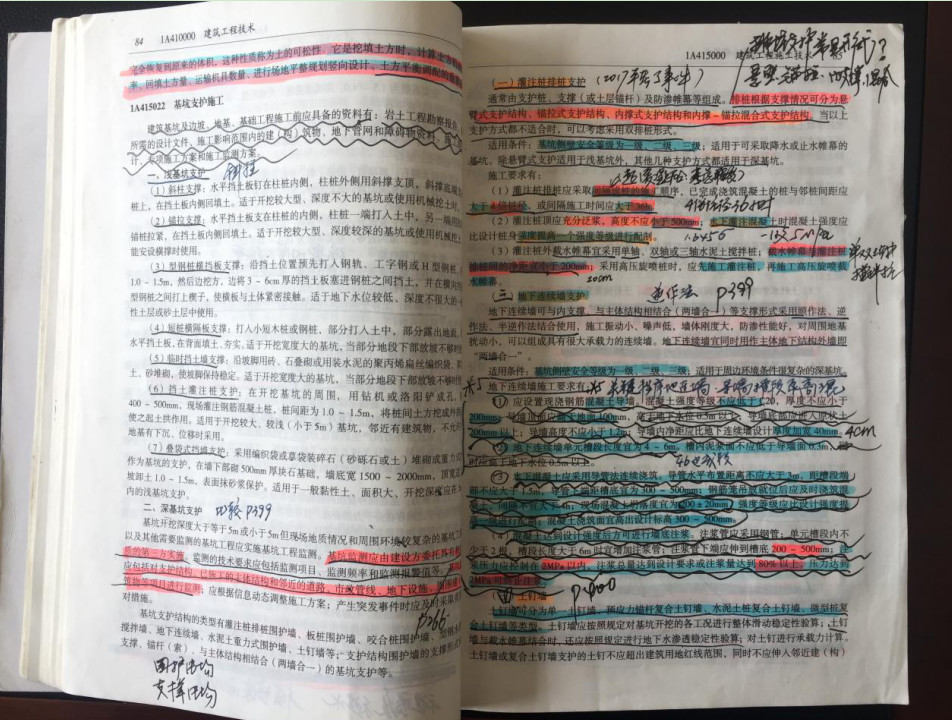 84 1A410000 建筑工程技术
完全恢复到原来的体积，这种性质称为土的可松性。它是挖填土方时，计算土方机
率、回填土方量、运输机具数量、进行场地平整规划竖向设计、土方平衡调配的
1A415022 基坑支护施工
建筑基坑及边坡、地基、基础工程施工前应具备的资料有：岩土工程勘察报告
所需的设计文件、施工影响范围内的建（构）筑物、地下管网和障碍物资料
计、专项施工方案和施工监测方案。
一、浅基坑支护
（1）斜柱支撑：水平挡土板钉在柱桩内侧，柱桩外侧用斜撑支顶，斜撑底端
桩上，在挡土板内侧回填土。适于开挖较大型、深度不大的基坑或使用机械挖土时
（2）锚拉支撑：水平挡土板支在柱桩的内侧，柱桩一端打入土中，另一端用
锚桩拉紧，在挡土板内侧回填土。适于开挖较大型、深度较深的基坑或使用机械挖
能安设横撑时使用。
（3）型钢桩横挡板支撑：沿挡土位置预先打入钢轨、工字钢或H型钢桩
1.0～1.5m，然后边挖方，边将3～6cm厚的挡土板塞进钢桩之间挡土，并在横
型钢桩之间打上楔子，使横板与土体紧密接触。适于地下水位较低、深度不很大的一
性土层或砂土层中使用。
（4）短桩横隔板支撑：打入小短木桩或钢桩，部分打入土中，部分露出地面
水平挡土板，在背面填土、夯实。适于开挖宽度大的基坑，当部分地段下部放坡不够时
（5）临时挡土墙支撑：沿坡脚用砖、石叠砌或用装水泥的聚丙烯扁丝编织袋、
土、砂堆砌，使坡脚保持稳定。适于开挖宽度大的基坑，当部分地段下部放坡不够时使
（6）挡土灌注桩支护：在开挖基坑的周围，用钻机或洛阳铲成孔，
400～500mm，现场灌注钢筋混凝土桩，桩间距为1.0～1.5m，将桩间土方挖成外
使之起土拱作用。适用于开挖较大、较浅（小于5m）基坑，邻近有建筑物，不允许
地基有下沉、位移时采用。
（7）叠袋式挡墙支护：采用编织袋或草袋装碎石（砂砾石或土）堆砌成重力式
作为基坑的支护，在墙下部砌500mm厚块石基础，墙底宽1500～2000mm，顶宽
坡卸土1.0～1.5m，表面抹砂浆保护。适用于一般黏性土、面积大、开挖深度应在
内的浅基坑支护。
二、深基坑支护 P399
基坑开挖深度大于等于5m或小于5m但现场地质情况和周围环境较复杂的基坑工
以及其他需要监测的基坑工程应实施基坑工程监测。基坑监测应由建设方委托具备相
质的第三方实施。监测的技术要求应包括监测项目、监测频率和监测报警值等。
应包括对支护结构、已施工的主体结构和邻近的道路、市政管线、地下设施、周围建
筑物等项目进行监测；应根据信息动态调整施工方案；产生突发事件时应及时采取
对措施。
P266
基坑支护结构的类型有灌注桩排桩围护墙、板桩围护墙、咬合桩围护墙、型钢水
搅拌墙、地下连续墙、水泥土重力式围护墙、土钉墙等；支护结构围护墙的支撑形式
支撑、锚杆（索）、与主体结构相结合（两墙合一）的基坑支护等。
围护结构
支撑结构
1A415000 建筑工程施工技术 85
（一）灌注桩排桩支护
通常由支护桩、支撑（或土层锚杆）及防渗帷幕等组成。排桩根据支撑情况可分为悬
臂式支护结构、锚拉式支护结构、内撑式支护结构和内撑-锚拉混合式支护结构。当以上
支护方式都不适合时，可以考虑采用双排桩形式。
适用条件：基坑侧壁安全等级为一级、二级、三级；适用于可采取降水或止水帷幕的
基坑。除悬臂式支护适用于浅基坑外，其他几种支护方式都适用于深基坑。
施工要求有：
（1）灌注桩排桩应采取间隔成桩的施工顺序，已完成浇筑混凝土的桩与邻桩间距应
大于4倍桩径，或间隔施工时间应大于36h。
（2）灌注桩顶应充分泛浆，高度不应小于500mm；地下灌注混凝土时混凝土强度应
比设计桩身强度提高一个强度等级进行配制。
（3）灌注桩外截水帷幕宜采用单轴、双轴或三轴水泥土搅拌桩；截水帷幕与灌注桩
排桩间的净距宜小于200mm；采用高压旋喷桩时，应先施工灌注桩，再施工高压旋喷截
水帷幕。 20cm
（二）地下连续墙支护 逆作法 P399
地下连续墙可与内支撑、与主体结构相结合（两墙合一）等支撑形式采用顺作法、逆
作法、半逆作法结合使用，施工振动小、噪声低，墙体刚度大，防渗性能好，对周围地基
扰动小，可以组成具有很大承载力的连续墙。地下连续墙宜同时用作主体地下结构外墙即
“两墙合一”。
适用条件：基坑侧壁安全等级为一级、二级、三级；适用于周边环境条件很复杂的深基坑。
地下连续墙施工要求有：
（1）应设置现浇钢筋混凝土导墙。混凝土强度等级不应低于C20，厚度不应小于
200mm；导墙顶面应高于地面100mm，高于地下水位0.5m以上；导墙底部应进入原状土
200mm以上；导墙高度不应小于1.2m；导墙内净距应比地下连续墙设计厚度加宽40mm。 4cm
（2）地下连续墙单元槽段长度宜为4～6m。槽内泥浆面不应低于导墙面0.3m，
时应高于地下水位0.5m以上。
（3）水下混凝土应采用导管法连续浇筑。导管水平布置距离不应大于3m，距槽段端
部不应大于1.5m，导管下端距槽底宜为300～500mm；钢筋笼吊放就位后应及时浇筑混
凝土，间隔不宜大于4h；现场混凝土坍落度宜为200±20mm，强度等级应比设计强度提
高一级进行配制；混凝土浇筑面宜高出设计标高300～500mm。
（4）混凝土达到设计强度后方可进行墙底注浆。注浆管应采用钢管；单元槽段内不
少于2根，槽段长度大于6m时宜增加注浆管；注浆管下端应伸到槽底200～500mm；注
浆压力应控制在2MPa以内，注浆总量达到设计要求或注浆量达到80%以上，压力达到
2MPa可终止注浆。
土钉墙 P400
土钉墙可分为单一土钉墙、预应力锚杆复合土钉墙、水泥土桩复合土钉墙、微型桩复
合土钉墙等类型。土钉墙应按照规定对基坑开挖的各工况进行整体滑动稳定性验算；土钉
墙与截水帷幕结合时，还应按照规定进行地下水渗透稳定性验算；对土钉进行承载力计算。
土钉墙或复合土钉墙支护的土钉不应超出建筑用地红线范围，同时不应伸入邻近建（构）